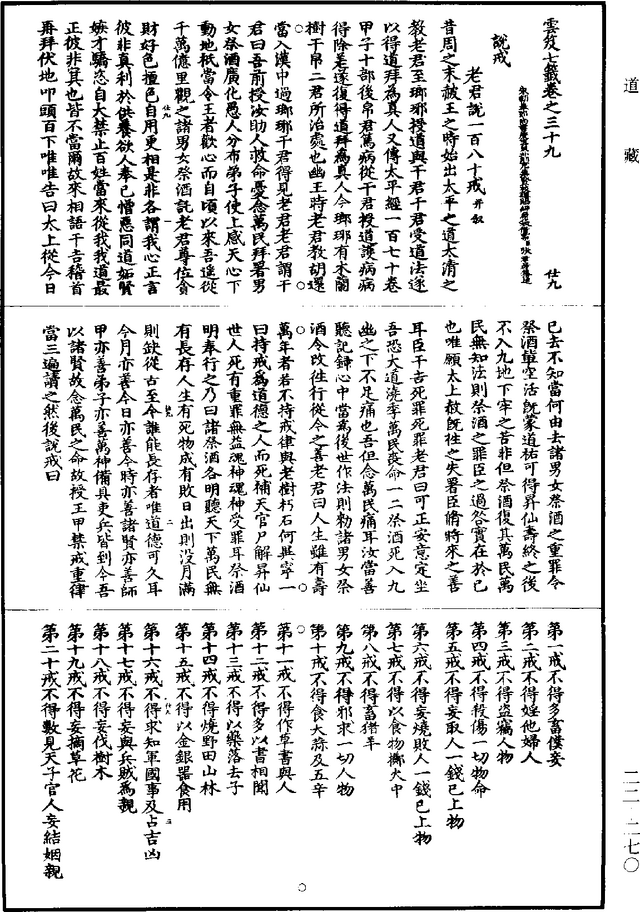 道藏
雲笈七籤卷之三十九
仕九
說戒
老君說一百八十戒并叙
昔周之末赧王之時始出太平之道太清之
教老君至瑯琊授道與干君干君受道法遂
以得道拜為真人又傳太平經一百七十卷
甲子十部後帛君篤病從干君授道護病病
得除差遂復得道拜為真人今瑯琊有木蘭
樹干帛二君所治處也幽王時老君教胡還
當入漢中過瑯琊干君得見老君老君謂干
君曰吾前授汝助人救命憂念萬民拜署男
女祭酒廣化愚人分布弟子使上感天心下
動地祇當令王者歡心而自頃以來吾遙從
千萬億里觀之諸男女祭酒託老君尊位貪
財好色擅色自用更相是非各謂我心正言
彼非真利於供養欲人奉己憎惡同道妬賢
嫉才驕恣自大禁止百姓當來從我我道最
正彼非真也皆不當爾故來相語干吉稽首
再拜伏地叩頭百下唯唯告曰太上從今日
已去不知當何由去諸男女祭酒之重罪令
祭酒萆空活既蒙道祐可得昇仙壽終之後
不入九地下牢之苦非但祭酒復其萬民萬
民無知法則祭酒之罪臣之過咎實在於已
也唯願太上赦既往之失署臣脩將來之善
耳臣干吉死罪死罪老君曰可正安意定坐
吾恐大道澆季萬民喪命一二祭酒死入九
幽之下不足痛也吾但念萬民痛耳汝當善
聽記錄心中當為後世作法則勑諸男女祭
酒令改往行從今之善老君曰人生雖有壽
萬年者若不持戒律與老樹朽石何異寧一
日持戒為道德之人而死補天官尸解昇仙
世人死有重罪無益魂神魂神受罪耳祭酒
明奉行之乃曰諸祭酒各明聽天下萬民無
有長存人生有死物成有敗日出則没月滿
則缺從古至今誰能長存者唯道德可久耳
今月亦善今日亦善今時亦善諸賢亦善師
甲亦善弟子亦善萬神備具吏兵皆到今吾
以諸賢故念萬民之命故授王甲禁戒重律
當三遍讀之然後說戒曰
第一戒不得多畜僕妾
第二戒不得婬他婦人
第三戒不得盜竊人物
第四戒不得殺傷一切物命
第五戒不得妄取人一錢已上物
第六戒不得妄燒敗人一錢已上物
第七戒不得以食物擲火中
第八戒不得畜猪羊
第九戒不得邪求一切人物
第十戒不得食大蒜及五辛
第十一戒不得作草書與人
第十二戒不得多以書相聞
第十三戒不得以藥落去子
第十四戒不得燒野田山林
第十五戒不得以金銀器食用
第十六戒不得求知軍國事及占吉凶
第十七戒不得妄與兵賊為親
第十八戒不得妄伐樹木
第十九戒不得妄摘草花
第二十戒不得數見天子官人妄結姻親
二二·二七〇